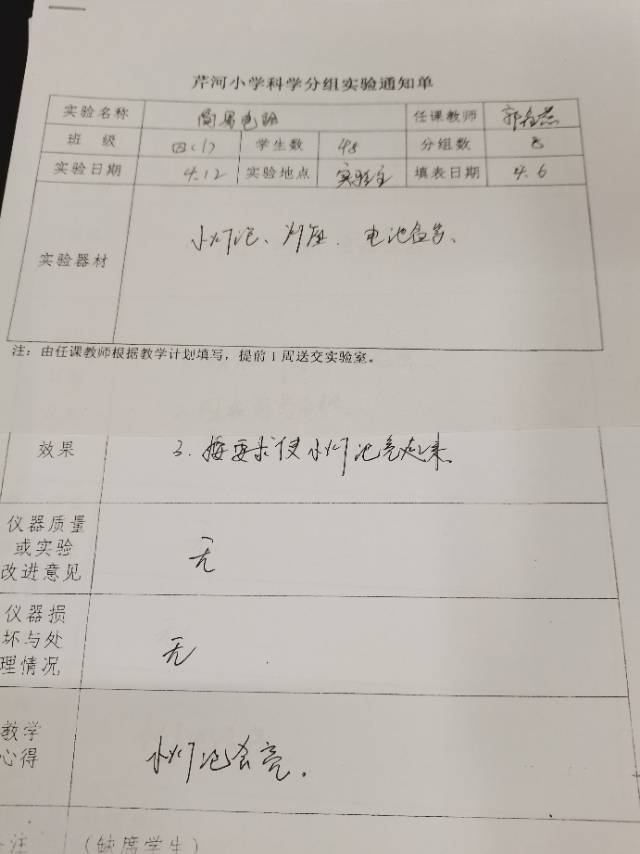 芹河小学科学分组实验通知单
实验名称 简易电路 任课教师
班 级 四(1) 学生数 48 分组数 8
实验日期 4.12 实验地点 实验室 填表日期 4.6
实验器材 小灯泡、灯座、电池盒等、
注：由任课教师根据教学计划填写，提前1周送交实验室。
效果 3.按要求使小灯泡亮起来
仪器质量
或实验
改进意见 无
仪器损
坏与处
理情况 无
教学
心得 小灯泡会亮。
注 (缺席学生)